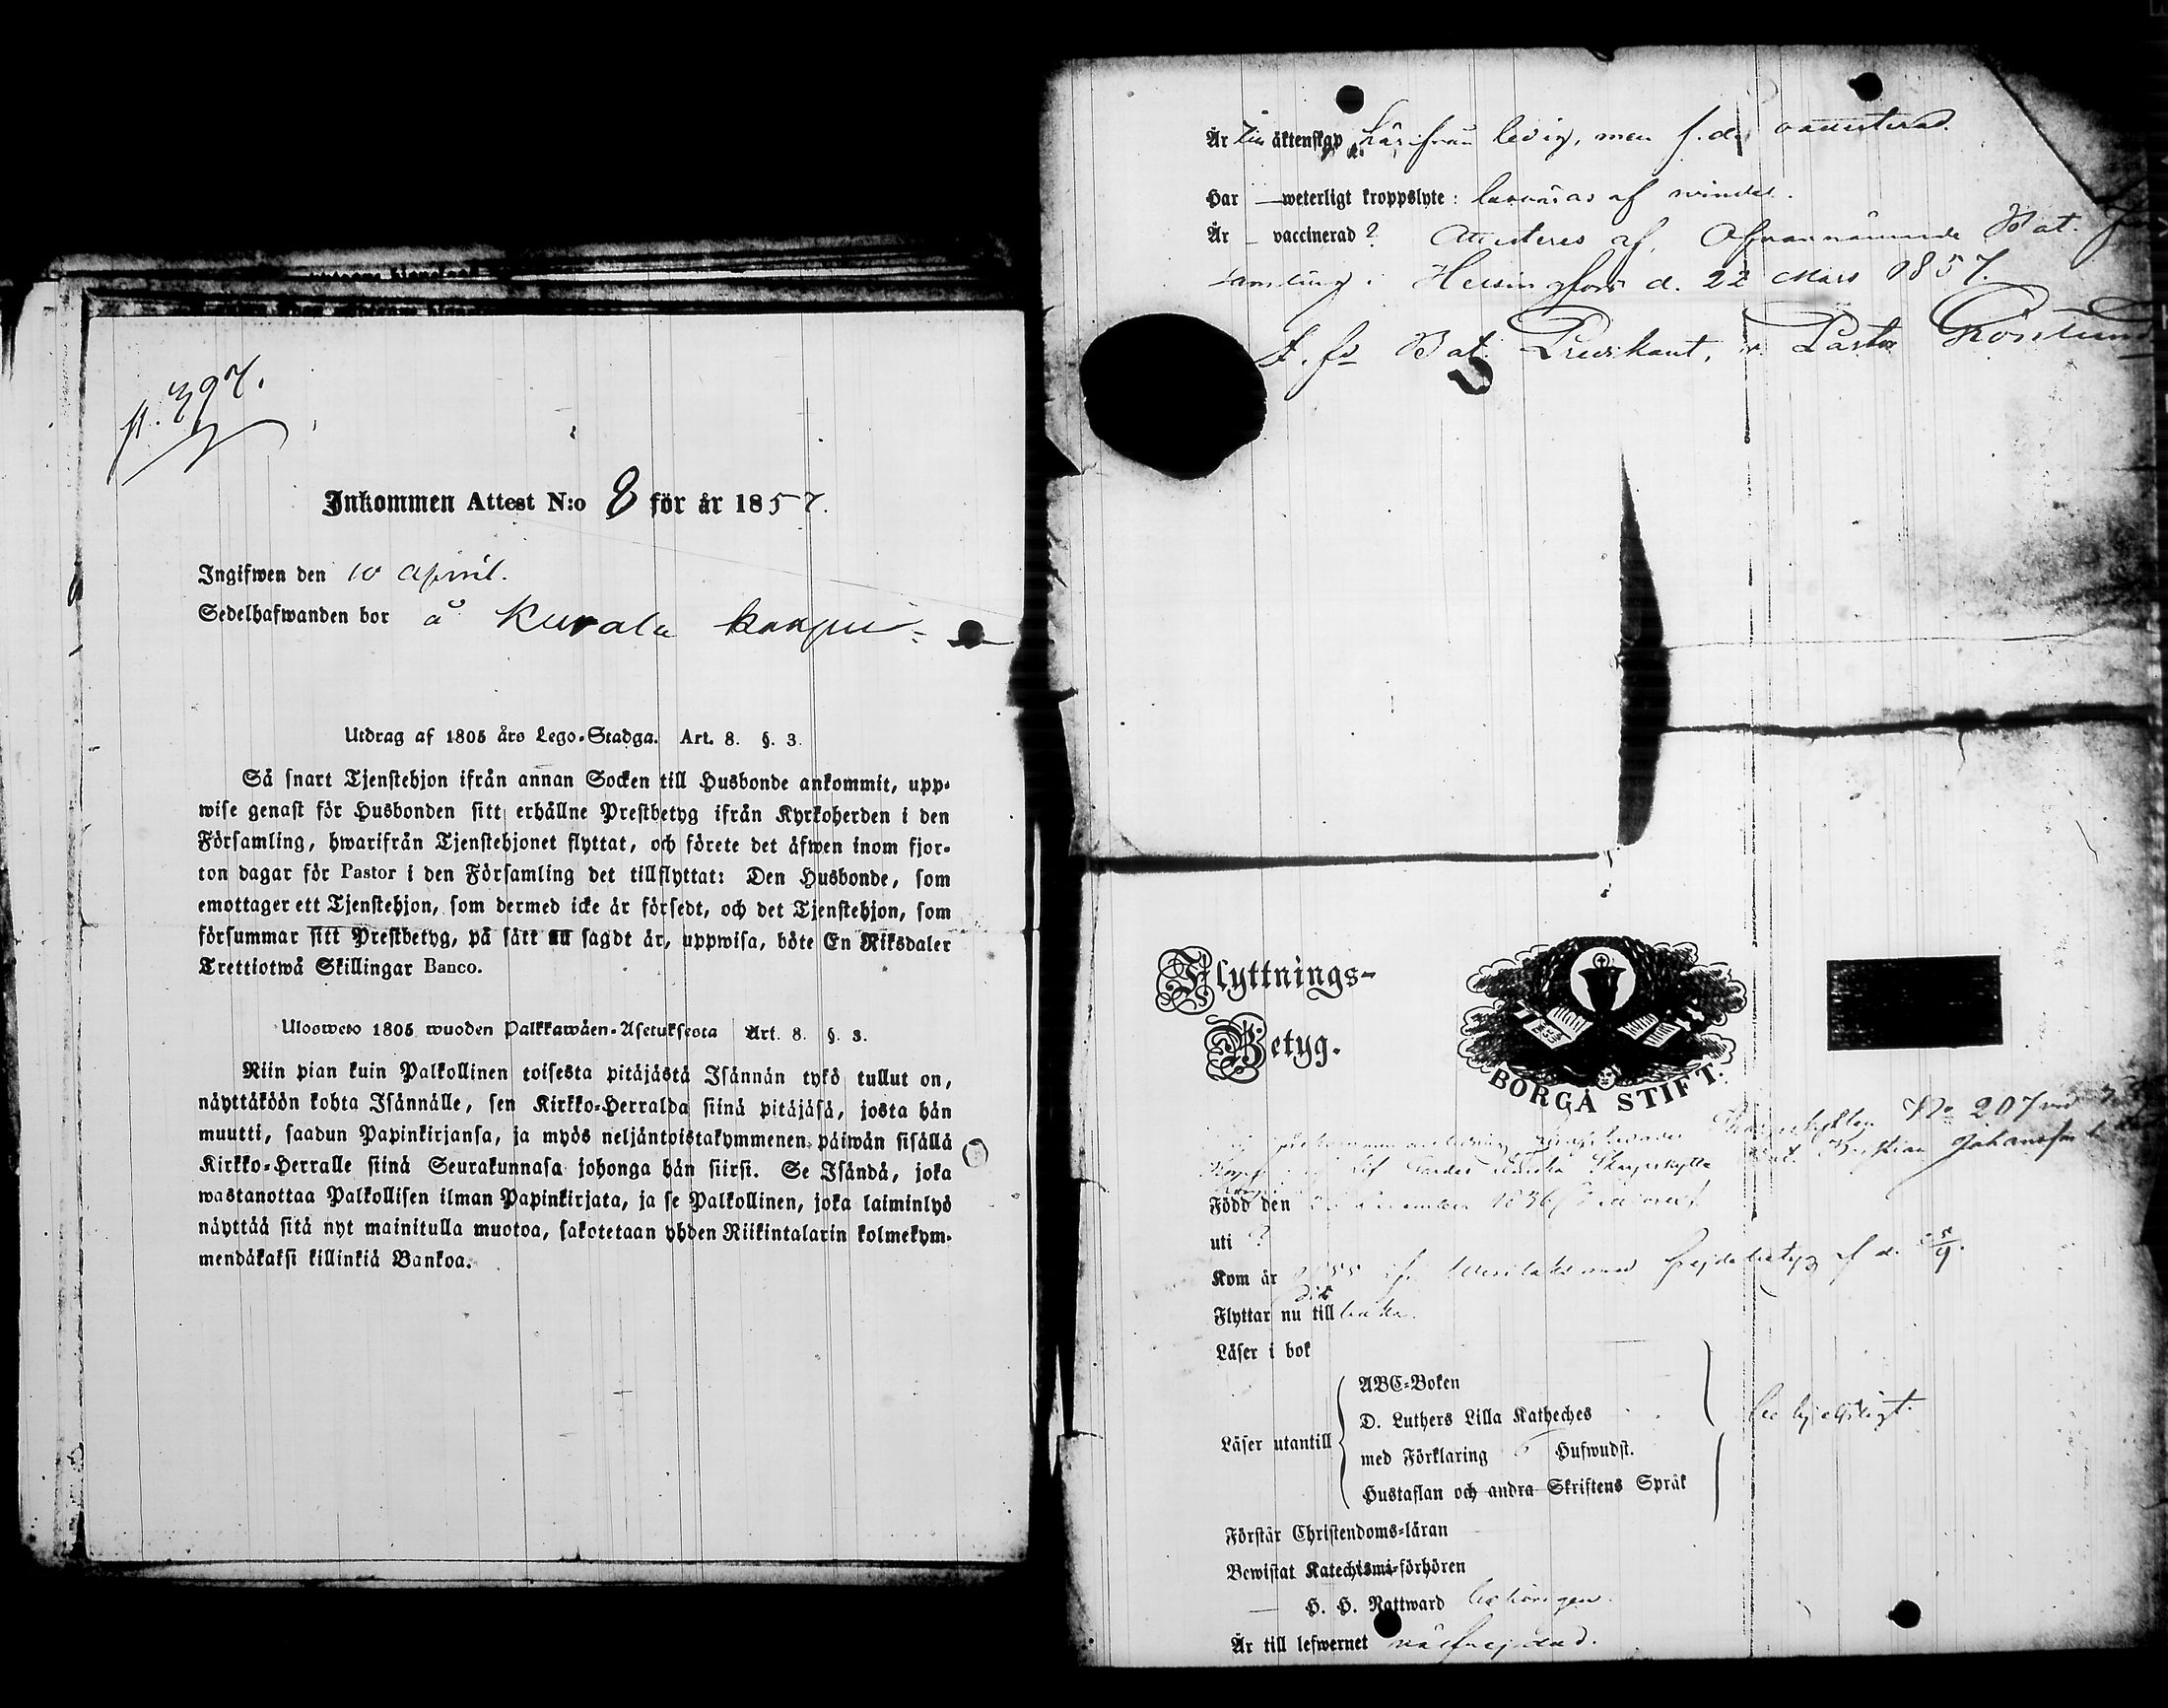 p. 397.
Inkommen Attest N:o 8 för år 1857.
Ingifwen den 10 April.
Sedelhafwanden bor å Kurala
Utdrag af 1805 års Lego-Stadga. Art. 8. §. 3.
Så snart Tjenstehjon ifrån annan Socken till Husbonde ankommit, upp-
wise genast för Husbonden sitt erhållne Prestbetyg ifrån Kyrkoherden i den
Församling, hwarifrån Tjenstehjonet flyttat, och förete det äfwen inom fjor-
ton dagar för Pastor i den Församling det tillflyttat: Den Husbonde, som
emottager ett Tjenstehjon, som dermed icke är försedt, och det Tjenstehjon, som
försummar sitt Prestbetyg, på sätt nu sagdt är, uppwisa, böte En Riksdaler
Trettiotwå Skillingar Banco.
Ulosweto 1805 wuoden Palkkawäen-Asetuksesta Art. 8. §. 3.
Niin pian kuin Palkollinen toisesta pitäjästä Isännän tykö tullut on,
näyttäköön kohta Isännälle, sen Kirkko-Herralda siinä pitäjäsä, josta hän
muutti, saadun Papinkirjansa, ja myös neljäntoistakymmenen päiwän sisällä
Kirkko-Herralle siinä Seurakunnasa johonga hän siirsi. Se Isändä, joka
wastanottaa Palkollisen ilman Papinkirjata, ja se Palkollinen, joka laiminlyö
näyttää sitä nyt mainitulla muotoa, sakotetaan yhden Riikintalarin kolmekym-
mendäkaksi killinkiä Bankoa.
Är äktenskap härifrån ledig, men f.d.
Har — weterligt kroppslyte: af
Är — vaccinerad? Attesteres af Ofvannämnde Bat.
samling i Helsingfors d. 22 Mars 1857.
Bat. Predikant, v. Pastor
Flyttnings-
Betyg.
BORGÅ STIFT.
No 207
Lif Finska Skarpskytte Bat. Johansson
Född den December 1836
uti ?
Kom år med frejdebetyg af d.
Flyttar nu till dit
Läser i bok
ABC-Boken
D. Luthers Lilla Katheches
Läser utantill
med Förklaring Hufwudst.
behjelpligt.
Hustaflan och andra Skriftens Språk
Förstår Christendoms-läran
Bewistat Katechismi-förhören
— H. H. Nattward behörigen.
Är till lefwernet välfrejdad.